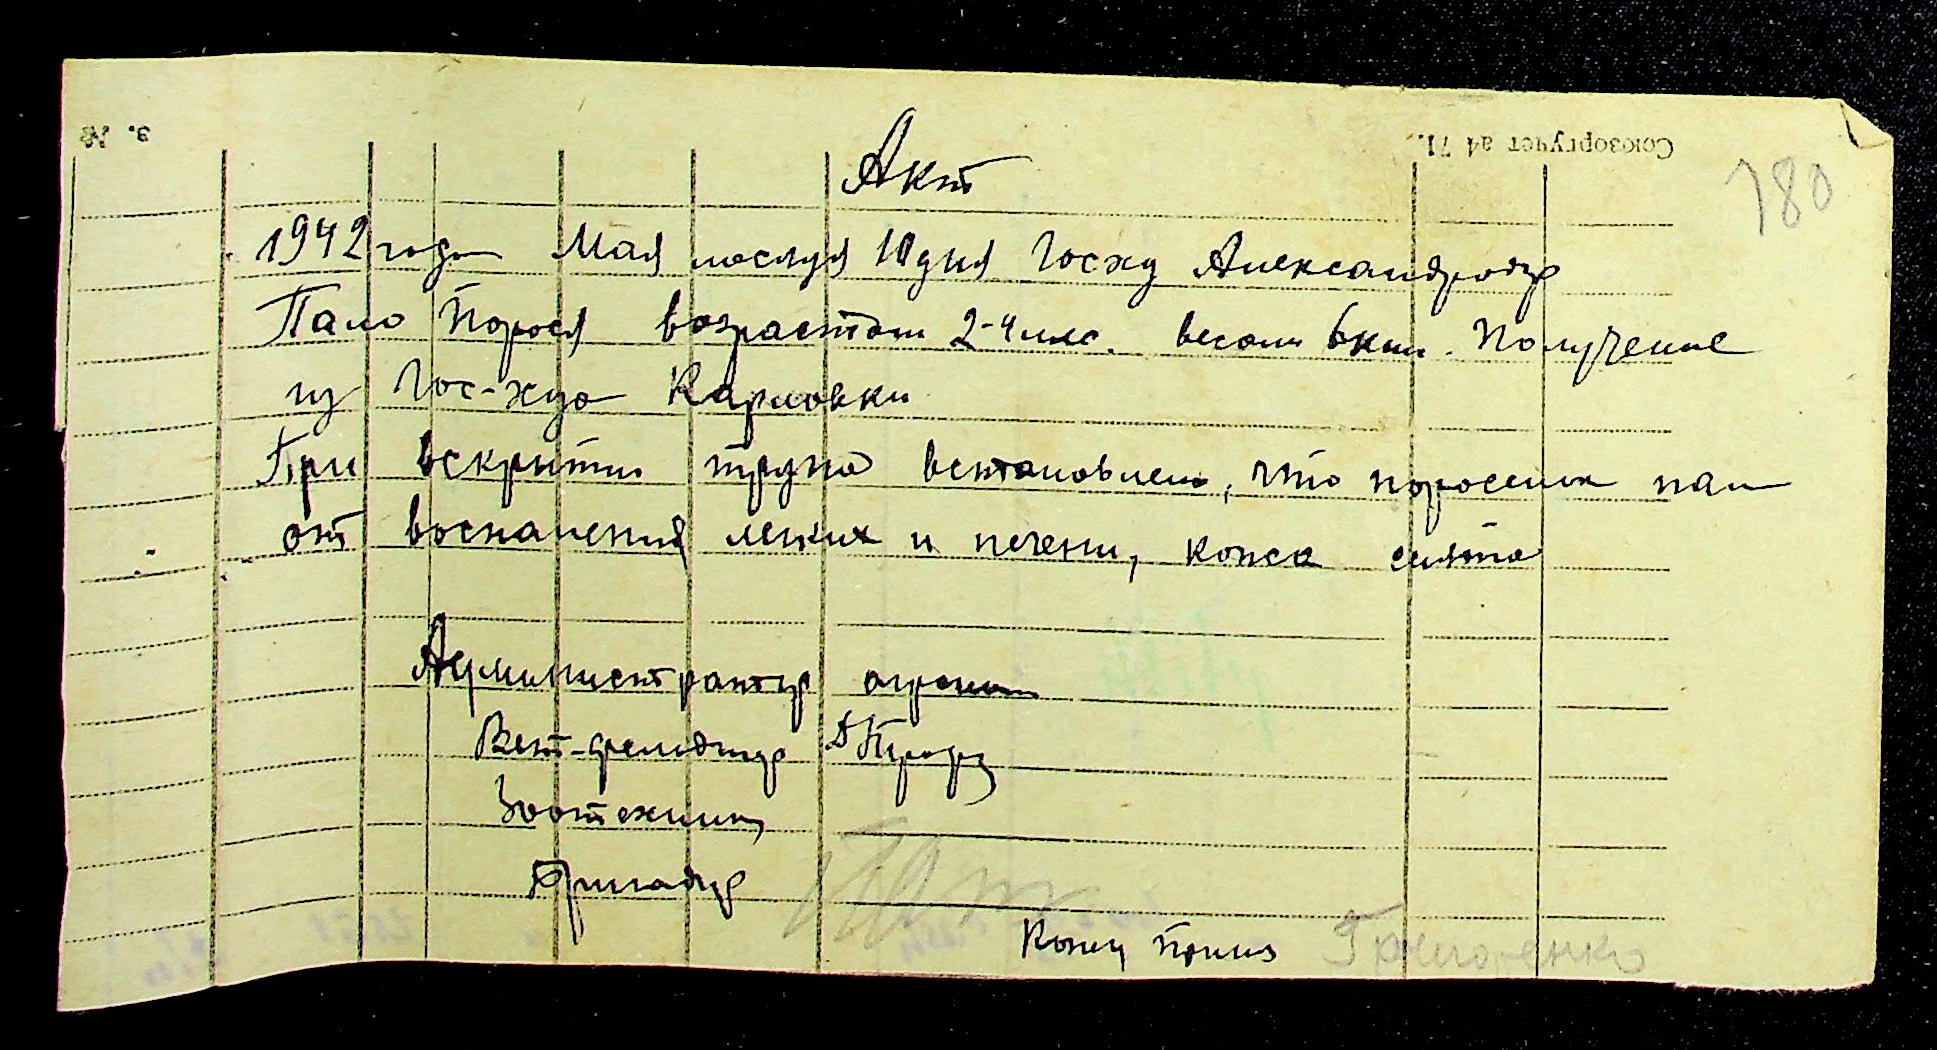 з. №
Союзоргучет а4 71.
180
Акт
1942 года Мая 10 дня Госху
Пало Порося возрастом 2-4 мес. весом 6 кил. Полученое
из Гос-хуа Карловки
При вскрыти трупа встановлено, что поросенок пал
от воспаления легких и печени, кожа снята
Администратур агроном
Вет-фельдшур
Зоотехник
Бригадир
Конец Григоренко